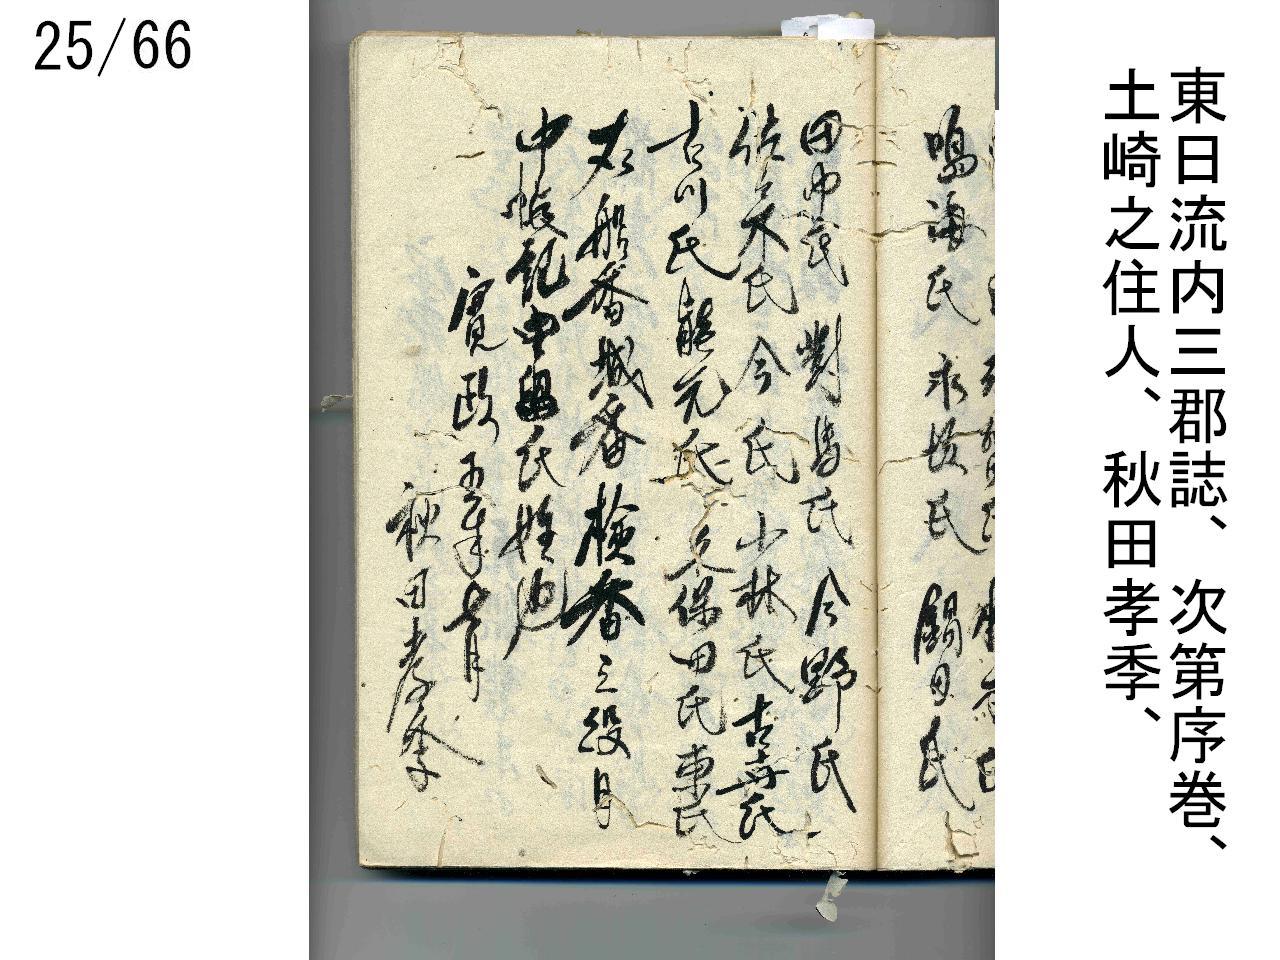 25/66
東日流内三郡誌、次第序巻、
土崎之住人、秋田孝季、
鳴海氏 永坂氏 鍋田氏
田中氏 對馬氏 今野氏
佐々木氏 今氏 小林氏 古井氏
古川氏 能元氏 久保田氏 東氏
右船番城番検番三役月
中帳記 氏姓也
寛政五年七月
秋田孝季